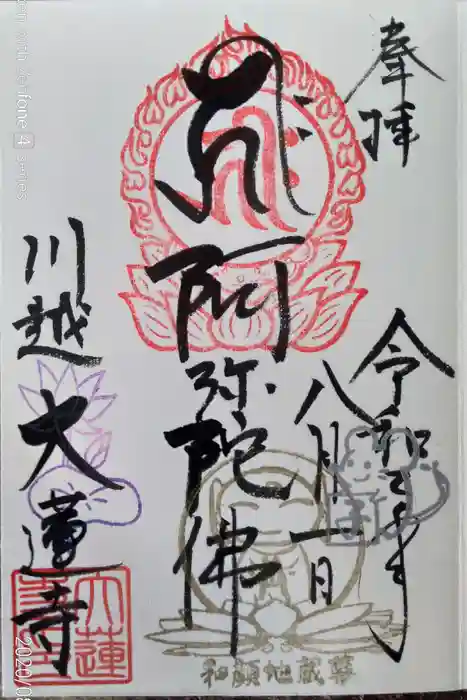 奉拝
令和二年
八月一日
阿弥陀佛
川越 大蓮寺
大蓮
和顔地蔵尊
2020/0